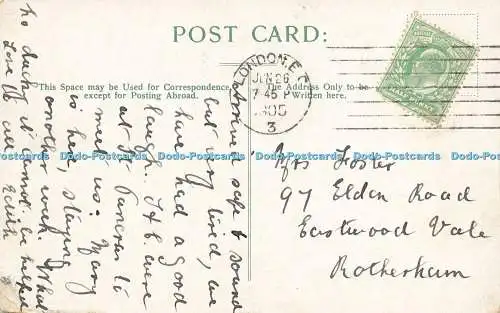 POST CARD:
This Space may be Used for Correspondence,
except for Posting Abroad.
The Address Only to be
Written here.
LONDON. E.C
JUN 26
7.45 P
05
3
Arrive safe & sound
but very tired, we
have had a good
laugh. were
at St Pancras to
meet us: Mary
is here, staying
another week. What
ho ducks it cannot be helped
Love to all Edith
Mrs Foster
97 Eldon Road
Eastwood Vale
Rotherham
Dodo-Postcards Dodo-Postcards Dodo-Postcards Dodo-Postcards Dodo-Postcards Dodo-Postcards